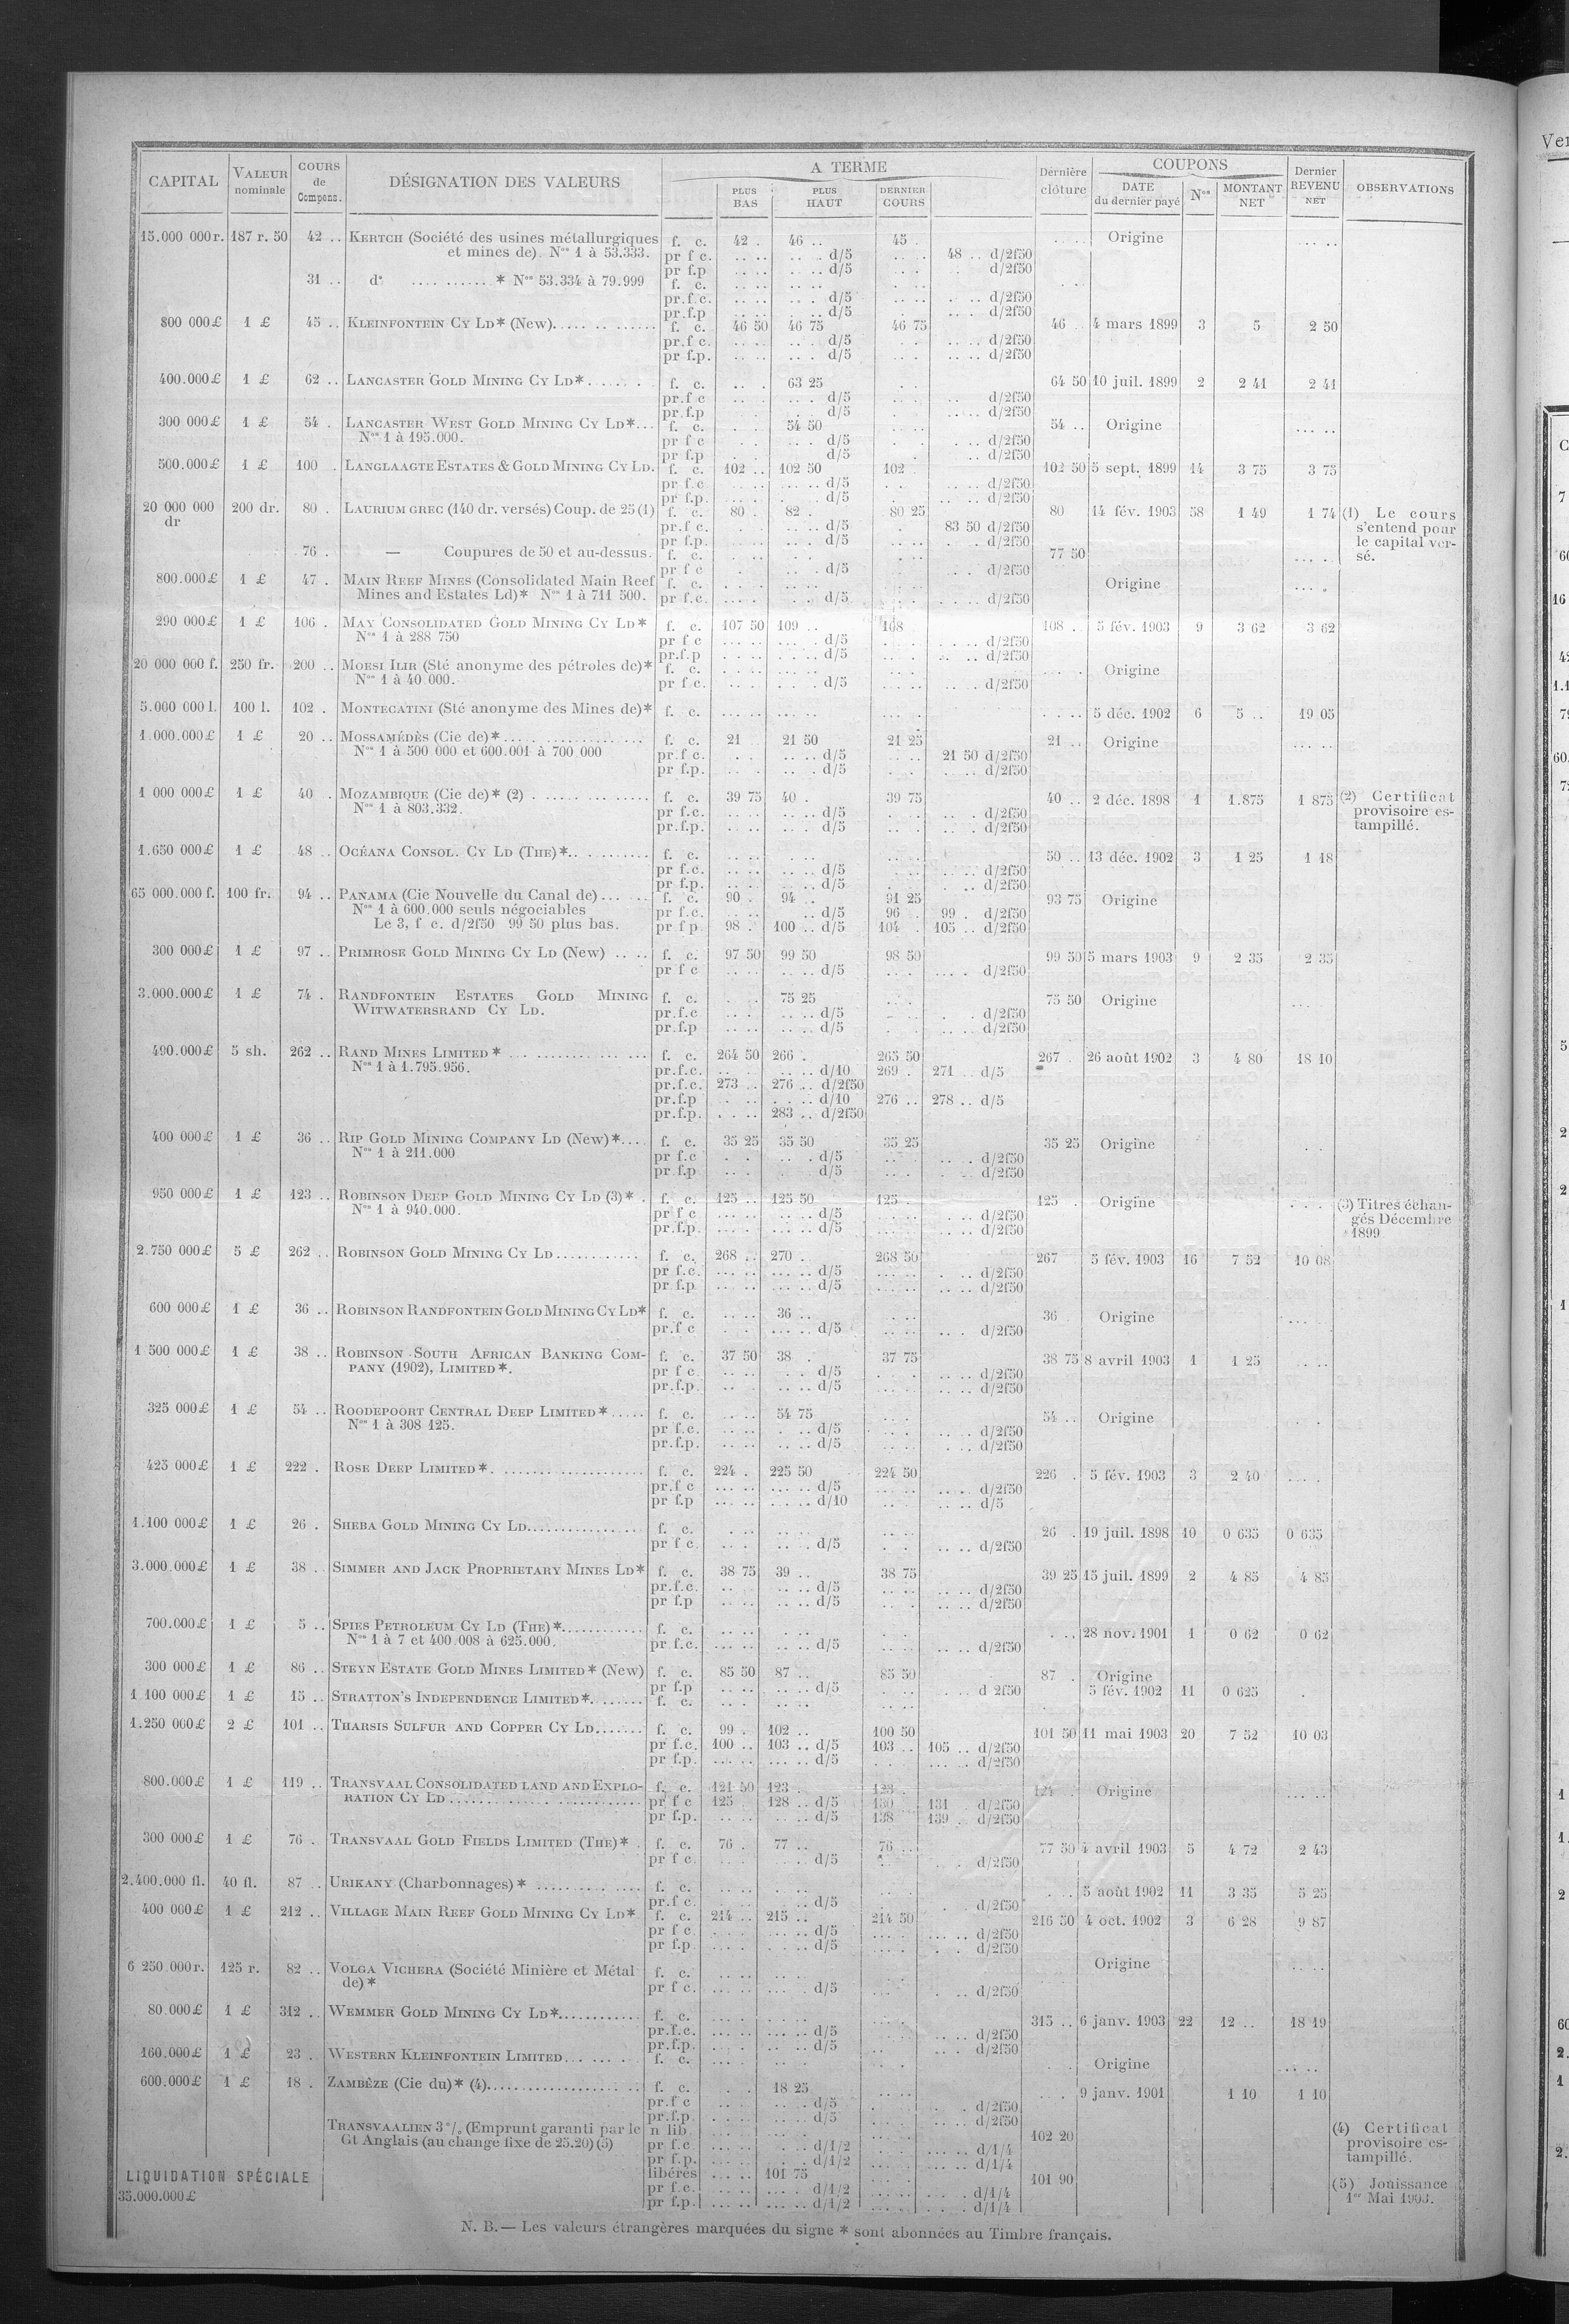 CAPITAL | VALEUR nominale | COURS de Compens. | DÉSIGNATION DES VALEURS | A TERME | PLUS BAS | PLUS HAUT | DERNIER COURS | Dernière clôture | COUPONS | DATE du dernier payé | Nos | MONTANT NET | Dernier REVENU NET | OBSERVATIONS
15.000 000 r. 187 r. 50 42 .. KERTCH (Société des usines métallurgiques f. c. 42 . 46 .. 45 . Origine
et mines de). Nos 1 à 53.333. pr f c. d/5 48 .. d/2f50
pr f.p d/5 d/2f50
31 .. do .... ...... * Nos 53.334 à 79.999 f. c.
pr.f.c. d/5 d/2f50
pr.f.p d/5 d/2f50
800 000£ 1 £ 45 .. KLEINFONTEIN CY LD* (New) f. c. 46 50 46 75 46 75 46 .. 4 mars 1899 3 5 2 50
pr.f c. d/5 d/2f50
pr f.p. d/5 d/2f50
400.000£ 1 £ 62 .. LANCASTER GOLD MINING CY LD* f. c. 63 25 64 50 10 juil. 1899 2 2 41 2 41
pr.f.c d/5 d/2f50
pr.f.p d/5 d/2f50
300 000£ 1 £ 54 . LANCASTER WEST GOLD MINING CY LD* f. c. 54 50 54 .. Origine
Nos 1 à 195.000. pr f c d/5 d/2f50
pr f.p d/5 d/2f50
500.000£ 1 £ 100 . LANGLAAGTE ESTATES & GOLD MINING CY LD. f. c. 102 .. 102 50 102 . 102 50 5 sept. 1899 14 3 75 3 75
pr f.c d/5 d/2f50
pr f.p. d/5 d/2f50
20 000 000 dr 200 dr. 80 . LAURIUM GREC (140 dr. versés) Coup. de 25 (1) f. c. 80 . 82 . 80 25 80 14 fév. 1903 58 1 49 1 74 (1) Le cours
pr.f c. d/5 83 50 d/2f50 s'entend pour
pr f.p. d/5 d/2f50 le capital ver-
76 . — Coupures de 50 et au-dessus. f. c. 77 50 sé.
pr f c d/5 d/2f50
800.000£ 1 £ 47 . MAIN REEF MINES (Consolidated Main Reef f. c. Origine
Mines and Estates Ld)* Nos 1 à 711 500. pr f.c. d/5 d/2f50
290 000£ 1 £ 106 . MAY CONSOLIDATED GOLD MINING CY LD* f. c. 107 50 109 .. 108 . 108 . 5 fév. 1903 9 3 62 3 62
Nos 1 à 288 750 pr f c d/5 d/2f50
pr.f.p d/5 d/2f50
20 000 000 f. 250 fr. 200 .. MOESI ILIR (Sté anonyme des pétroles de)* f. c. Origine
Nos 1 à 40.000. pr f c. d/5 d/2f50
5.000 000 l. 100 l. 102 . MONTECATINI (Sté anonyme des Mines de)* f. c. 5 déc. 1902 6 5 .. 19 05
1.000.000£ 1 £ 20 .. MOSSAMÉDÈS (Cie de)* f. c. 21 21 50 21 25 21 .. Origine
Nos 1 à 500 000 et 600.001 à 700 000 pr.f c. d/5 21 50 d/2f50
pr f.p. d/5 d/2f50
1 000 000£ 1 £ 40 . MOZAMBIQUE (Cie de)* (2) f. c. 39 75 40 . 39 75 40 .. 2 déc. 1898 1 1.875 1 875 (2) Certificat
Nos 1 à 803.332. pr f.c. d/5 d/2f50 provisoire es-
pr.f.p. d/5 d/2f50 tampillé.
1.650 000£ 1 £ 48 .. OCÉANA CONSOL. CY LD (THE)* f. c. 50 .. 13 déc. 1902 3 1 25 1 18
pr f.c. d/5 d/2f50
pr f.p. d/5 d/2f50
65 000.000 f. 100 fr. 94 .. PANAMA (Cie Nouvelle du Canal de) f. c. 90 . 94 . 91 25 93 75 Origine
Nos 1 à 600.000 seuls négociables pr f.c. d/5 96 . 99 . d/2f50
Le 3, f c. d/2f50 99 50 plus bas. pr f p. 98 . 100 .. d/5 104 . 105 .. d/2f50
300 000£ 1 £ 97 .. PRIMROSE GOLD MINING CY LD (New) f. c. 97 50 99 50 98 50 99 50 5 mars 1903 9 2 35 2 35
pr f c d/5 d/2f50
3.000.000£ 1 £ 74 . RANDFONTEIN ESTATES GOLD MINING f. c. 75 25 75 50 Origine
WITWATERSRAND CY LD. pr.f.c d/5 d/2f50
pr.f.p d/5 d/2f50
490.000£ 5 sh. 262 .. RAND MINES LIMITED * f. c. 264 50 266 . 265 50 267 . 26 août 1902 3 4 80 18 10
Nos 1 à 1.795.956. pr.f.c. d/10 269 . 271 .. d/5
pr.f.c. 273 .. 276 .. d/2f50
pr.f.p d/10 276 .. 278 .. d/5
pr.f.p. 283 .. d/2f50
400 000£ 1 £ 36 .. RIP GOLD MINING COMPANY LD (New)* f. c. 35 25 35 50 35 25 35 25 Origine
Nos 1 à 211.000 pr f.c d/5 d/2f50
pr f.p d/5 d/2f50
950 000£ 1 £ 123 .. ROBINSON DEEP GOLD MINING CY LD (3)* f. c. 125 .. 125 50 125 . 125 . Origine (3) Titres échan-
Nos 1 à 940.000. pr f c d/5 d/2f50 gés Décembre
pr.f.p. d/5 d/2f50 1899
2.750 000£ 5 £ 262 .. ROBINSON GOLD MINING CY LD f. c. 268 .. 270 . 268 50 267 5 fév. 1903 16 7 52 10 08
pr f.c. d/5 d/2f50
pr f.p. d/5 d/2f50
600 000£ 1 £ 36 .. ROBINSON RANDFONTEIN GOLD MINING CY LD* f. c. 36 .. 36 Origine
pr.f c d/5 d/2f50
1 500 000£ 1 £ 38 .. ROBINSON SOUTH AFRICAN BANKING COM- f. c. 37 50 38 . 37 75 38 75 8 avril 1903 1 1 25
PANY (1902), LIMITED *. pr f c. d/5 d/2f50
pr.f.p. d/5 d/2f50
325 000£ 1 £ 54 .. ROODEPOORT CENTRAL DEEP LIMITED * f. c. 54 75 54 .. Origine
Nos 1 à 308 125. pr f.c. d/5 d/2f50
pr.f.p. d/5 d/2f50
425 000£ 1 £ 222 . ROSE DEEP LIMITED * f. c. 224 . 225 50 224 50 226 . 5 fév. 1903 3 2 40
pr.f c d/5 d/2f50
pr f.p d/10 d/5
1.100 000£ 1 £ 26 . SHEBA GOLD MINING CY LD f. c. 26 . 19 juil. 1898 10 0 635 0 635
pr f c. d/5 d/2f50
3.000.000£ 1 £ 38 .. SIMMER AND JACK PROPRIETARY MINES LD* f. c. 38 75 39 .. 38 75 39 25 15 juil. 1899 2 4 85 4 85
pr.f.c. d/5 d/2f50
pr f.p d/5 d/2f50
700.000£ 1 £ 5 .. SPIES PETROLEUM CY LD (THE)* f. c. 28 nov. 1901 1 0 62 0 62
Nos 1 à 7 et 400.008 à 625.000. pr.f.c. d/5 d/2f50
300 000£ 1 £ 86 .. STEYN ESTATE GOLD MINES LIMITED * (New) f. c. 85 50 87 .. 85 50 87 . Origine
pr f.p d/5 d 2f50
1.100 000£ 1 £ 15 .. STRATTON'S INDEPENDENCE LIMITED * f. c. 5 fév. 1902 11 0 625
1.250 000£ 2 £ 101 .. THARSIS SULFUR AND COPPER CY LD f. c. 99 . 102 .. 100 50 101 50 11 mai 1903 20 7 52 10 03
pr f.c. 100 .. 103 .. d/5 103 .. 105 .. d/2f50
pr f.p. d/5 d/2f50
800.000£ 1 £ 119 .. TRANSVAAL CONSOLIDATED LAND AND EXPLO- f. c. 121 50 123 . 123 . 124 . Origine
RATION CY LD pr f c 125 . 128 .. d/5 130 131 . d/2f50
pr f.p. d/5 138 139 .. d/2f50
300 000£ 1 £ 76 .. TRANSVAAL GOLD FIELDS LIMITED (THE)* f. c. 76 . 77 .. 76 .. 77 50 4 avril 1903 5 4 72 2 43
pr f c. d/5 d/2f50
2.400.000 fl. 40 fl. 87 .. URIKANY (Charbonnages) * f. c. 5 août 1902 11 3 35 5 25
pr.f c. d/5 d/2f50
400 000£ 1 £ 212 .. VILLAGE MAIN REEF GOLD MINING CY LD* f. c. 214 .. 215 .. 214 50 216 50 4 oct. 1902 3 6 28 9 87
pr f c. d/5 d/2f50
pr f.p d/5 d/2f50
6 250.000 r. 125 r. 82 .. VOLGA VICHERA (Société Minière et Métal f. c. Origine
de)* pr f c. d/5 d/2f50
80.000£ 1 £ 312 .. WEMMER GOLD MINING CY LD* f. c. 315 .. 6 janv. 1903 22 12 .. 18 19
pr.f.c. d/5 d/2f50
pr.f.p. d/5 d/2f50
160.000£ 1 £ 23 . WESTERN KLEINFONTEIN LIMITED f. c. Origine
600.000£ 1 £ 18 . ZAMBÈZE (Cie du)* (4) f. c. 18 25 9 janv. 1901 1 10 1 10
pr.f c d/5 d/2f50
pr.f.p. d/5 d/2f50
TRANSVAALIEN 3 % (Emprunt garanti par le n lib 102 20 (4) Certificat
Gt Anglais (au change fixe de 25.20) (5) pr f.c. d/1/2 d/1/4 provisoire es-
pr f.p. d/1/2 d/1/4 tampillé.
LIQUIDATION SPÉCIALE libérés 101 75 101 90 (5) Jouissance
35.000.000£ pr f.c. d/1/2 d/1/4 1er Mai 1903.
pr f.p. d/1/2 d/1/4
N. B.— Les valeurs étrangères marquées du signe * sont abonnées au Timbre français.